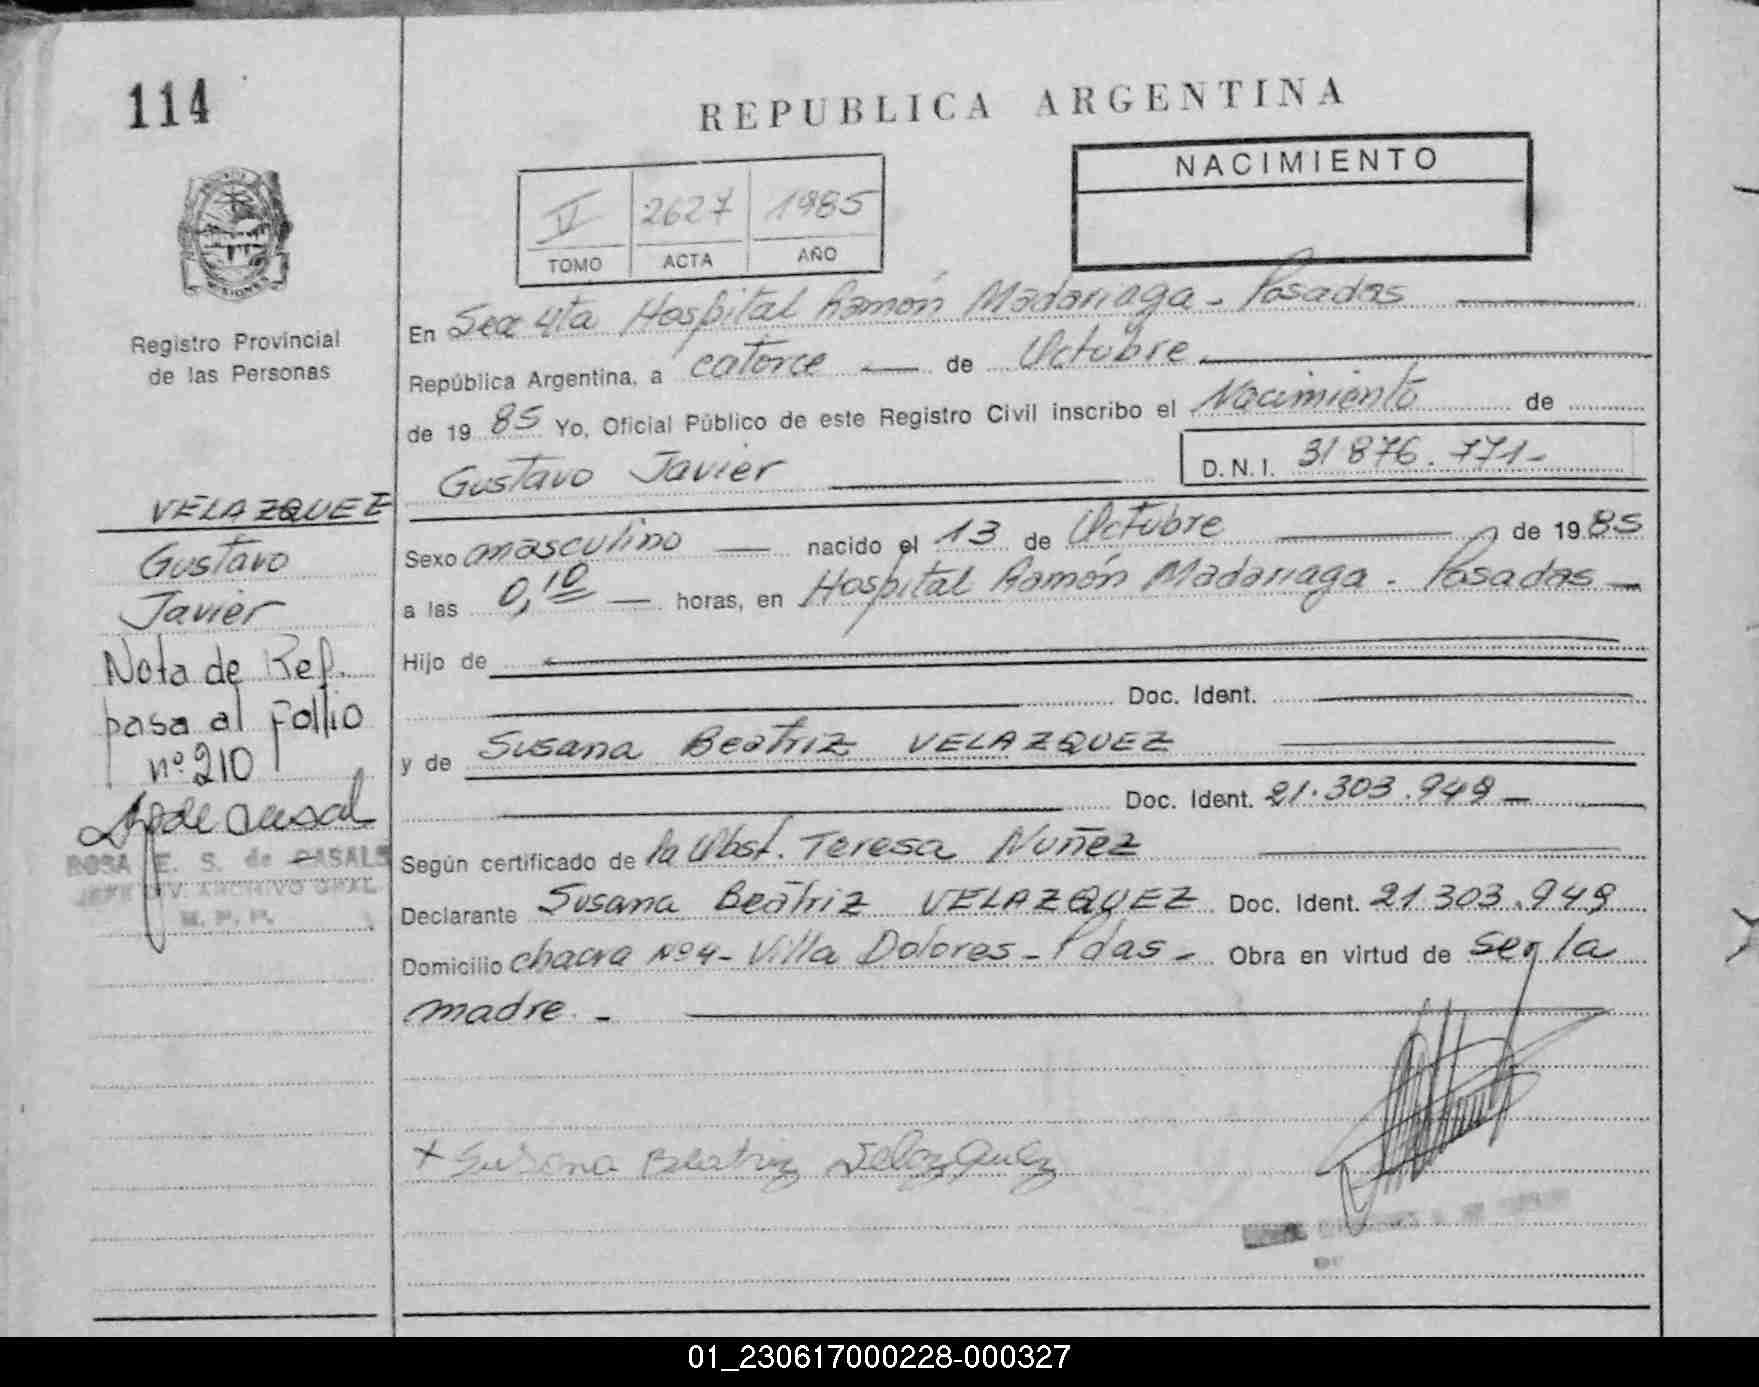 114
REPUBLICA ARGENTINA
NACIMIENTO
V 2627 1985
TOMO ACTA AÑO
MISIONES
Registro Provincial
de las Personas
VELAZQUEZ
Gustavo
Javier
Nota de Ref.
pasa al Follio
nº 210
ROSA E. S. de CASALS
JEFE DIV. ARCHIVO GRAL
M. P. P.
En Secc 4ta Hospital Ramón Madariaga - Posadas
República Argentina, a catorce de Octubre
de 19 85 Yo, Oficial Público de este Registro Civil inscribo el Nacimiento de
Gustavo Javier D.N.I. 31 876.771-
Sexo masculino nacido el 13 de Octubre de 19 85
a las 0,10 horas, en Hospital Ramón Madariaga - Posadas
Hijo de
Doc. Ident.
y de Susana Beatriz VELAZQUEZ
Doc. Ident. 21.303.949
Según certificado de la Obst. Teresa Nuñez
Declarante Susana Beatriz VELAZQUEZ Doc. Ident. 21 303.949
Domicilio chacra Nº 4 - Villa Dolores - Pdas - Obra en virtud de ser la
madre. -
+ Susana Beatriz Velazquez
01_230617000228-000327